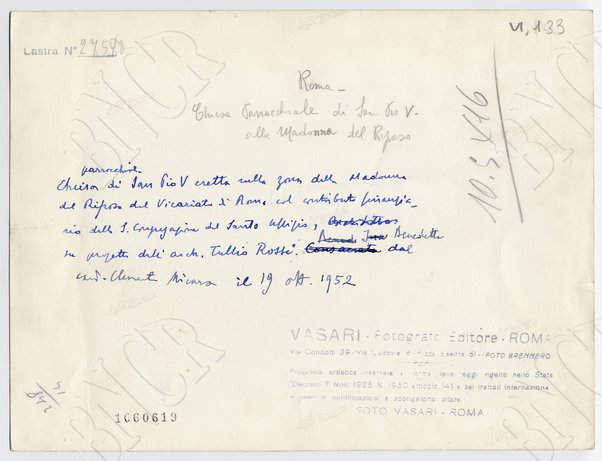 VI, 133
Lastra N° 27598
Roma -
Chiesa Parrocchiale di San Pio V -
alla Madonna del Riposo
10.5 x 16
parrocchiale
Chiesa di San Pio V eretta nella zona della Madonna
del Riposo dal Vicariato di Roma col contributo finanzia-
rio della S. Congregazione del Santo Uffizio, Architetto
su progetto dell'arch. Tullio Rossi. Consacrata Benedetta dal
card. Clemente Micara il 19 ott. 1952
VASARI - Fotografo Editore - ROMA
Via Condotti 39 - Via Ludovisi 6 - P.zza Esedra 61 - FOTO BRENNERO
Proprietà artistica riservata a norma delle leggi vigenti nello Stato
(Decreto 7 Nov. 1925 N. 1950 articolo 14) e dei trattati internazionali
di pubblicazioni è obbligatorio citare
FOTO VASARI - ROMA
1060619
BNCR
BNCR
BNCR